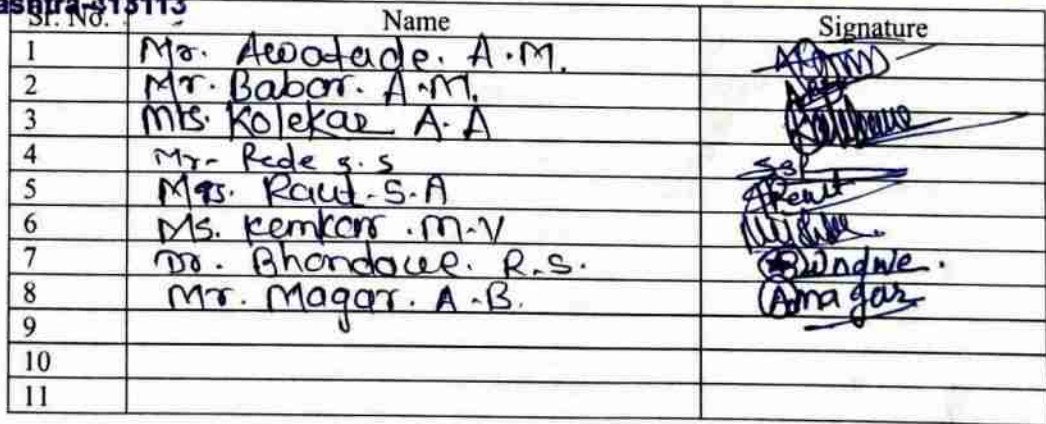 ashtra-413113
Sr. No. Name Signature
1 Mr. Awatade. A.M.
2 Mr. Babar. A.M.
3 Mrs. Kolekar A. A
4 Mr. Rede S. S
5 Mrs. Raut. S. A Raut
6 Ms. Kemkar . M. V
7 Dr. Bhandawe. R.S.
8 Mr. Magar. A. B. Amagar
9
10
11